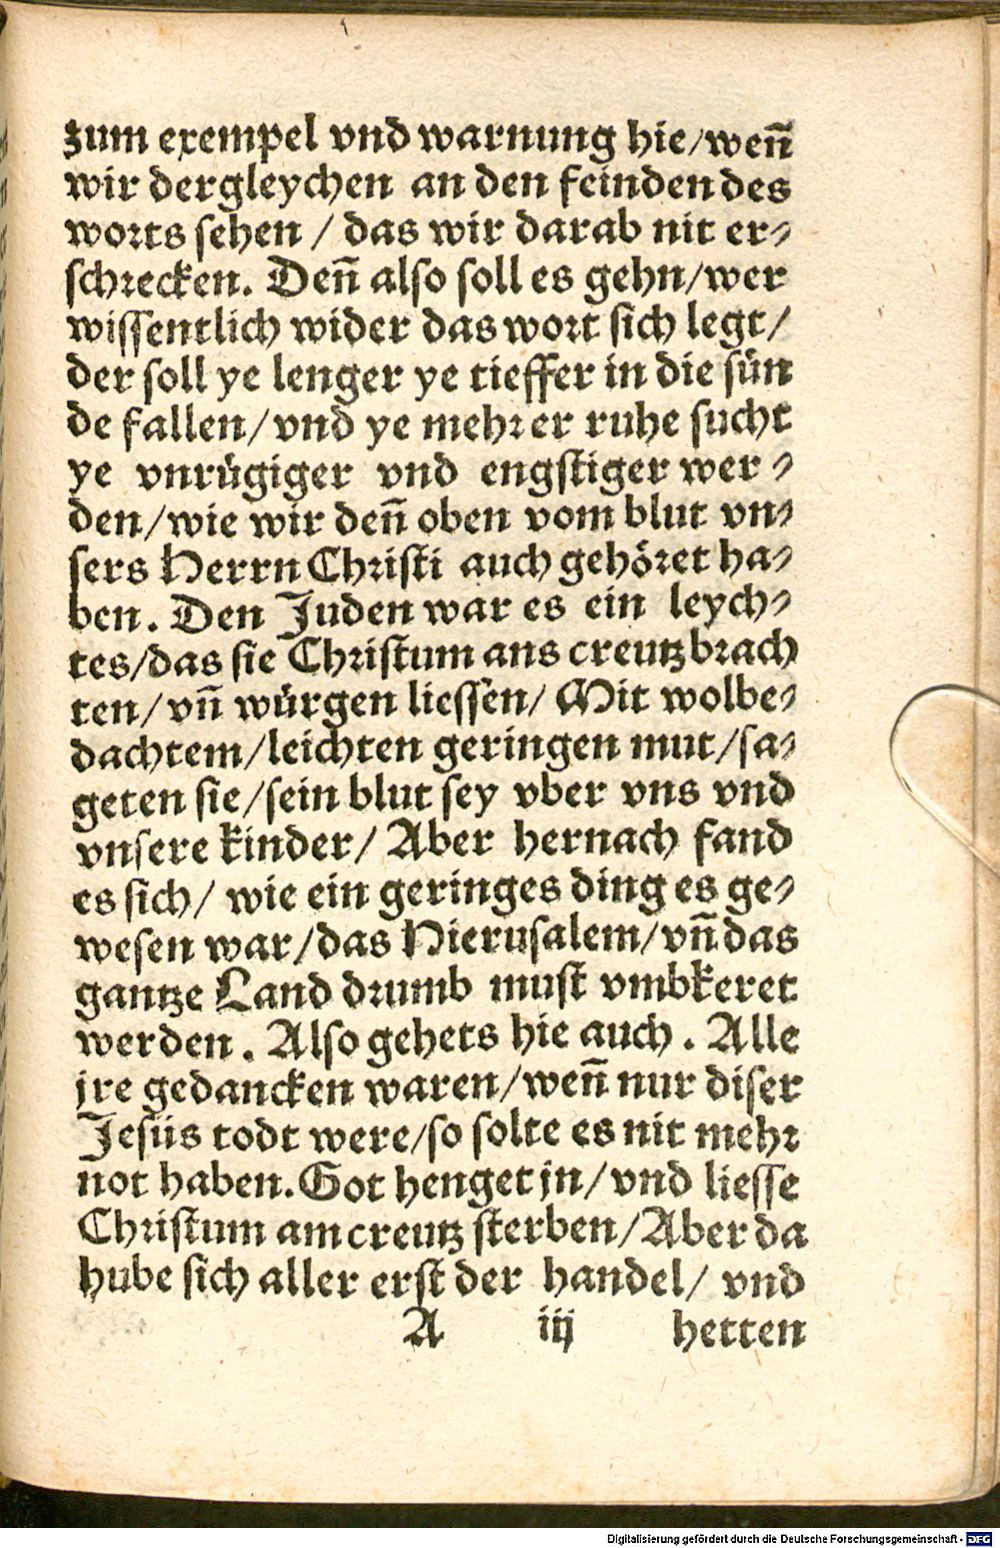 zum exempel vnd warnung hie/wen̄
wir dergleychen an den feinden des
worts sehen / das wir darab nit er-
schrecken. Den̄ also soll es gehn/wer
wissentlich wider das wort sich legt/
der soll ye lenger ye tieffer in die sün
de fallen/vnd ye mehr er ruhe sucht
ye vnrügiger vnd engstiger wer-
den/wie wir den̄ oben vom blut vn-
sers Herrn Christi auch gehöret ha-
ben. Den Juden war es ein leych-
tes/das sie Christum ans creutz brach
ten/vn̄ würgen liessen/ Mit wolbe-
dachtem/leichten geringen mut/sa-
geten sie/sein blut sey vber vns vnd
vnsere kinder/ Aber hernach fand
es sich/ wie ein geringes ding es ge-
wesen war/das Hierusalem/vn̄ das
gantze Land drumb must vmbkeret
werden. Also gehets hie auch. Alle
jre gedancken waren/wen̄ nur diser
Jesus todt were/so solte es nit mehr
not haben. Got henget jn/vnd liesse
Christum am creutz sterben/Aber da
hube sich aller erst der handel/ vnd
A iij hetten
Digitalisierung gefördert durch die Deutsche Forschungsgemeinschaft - DFG